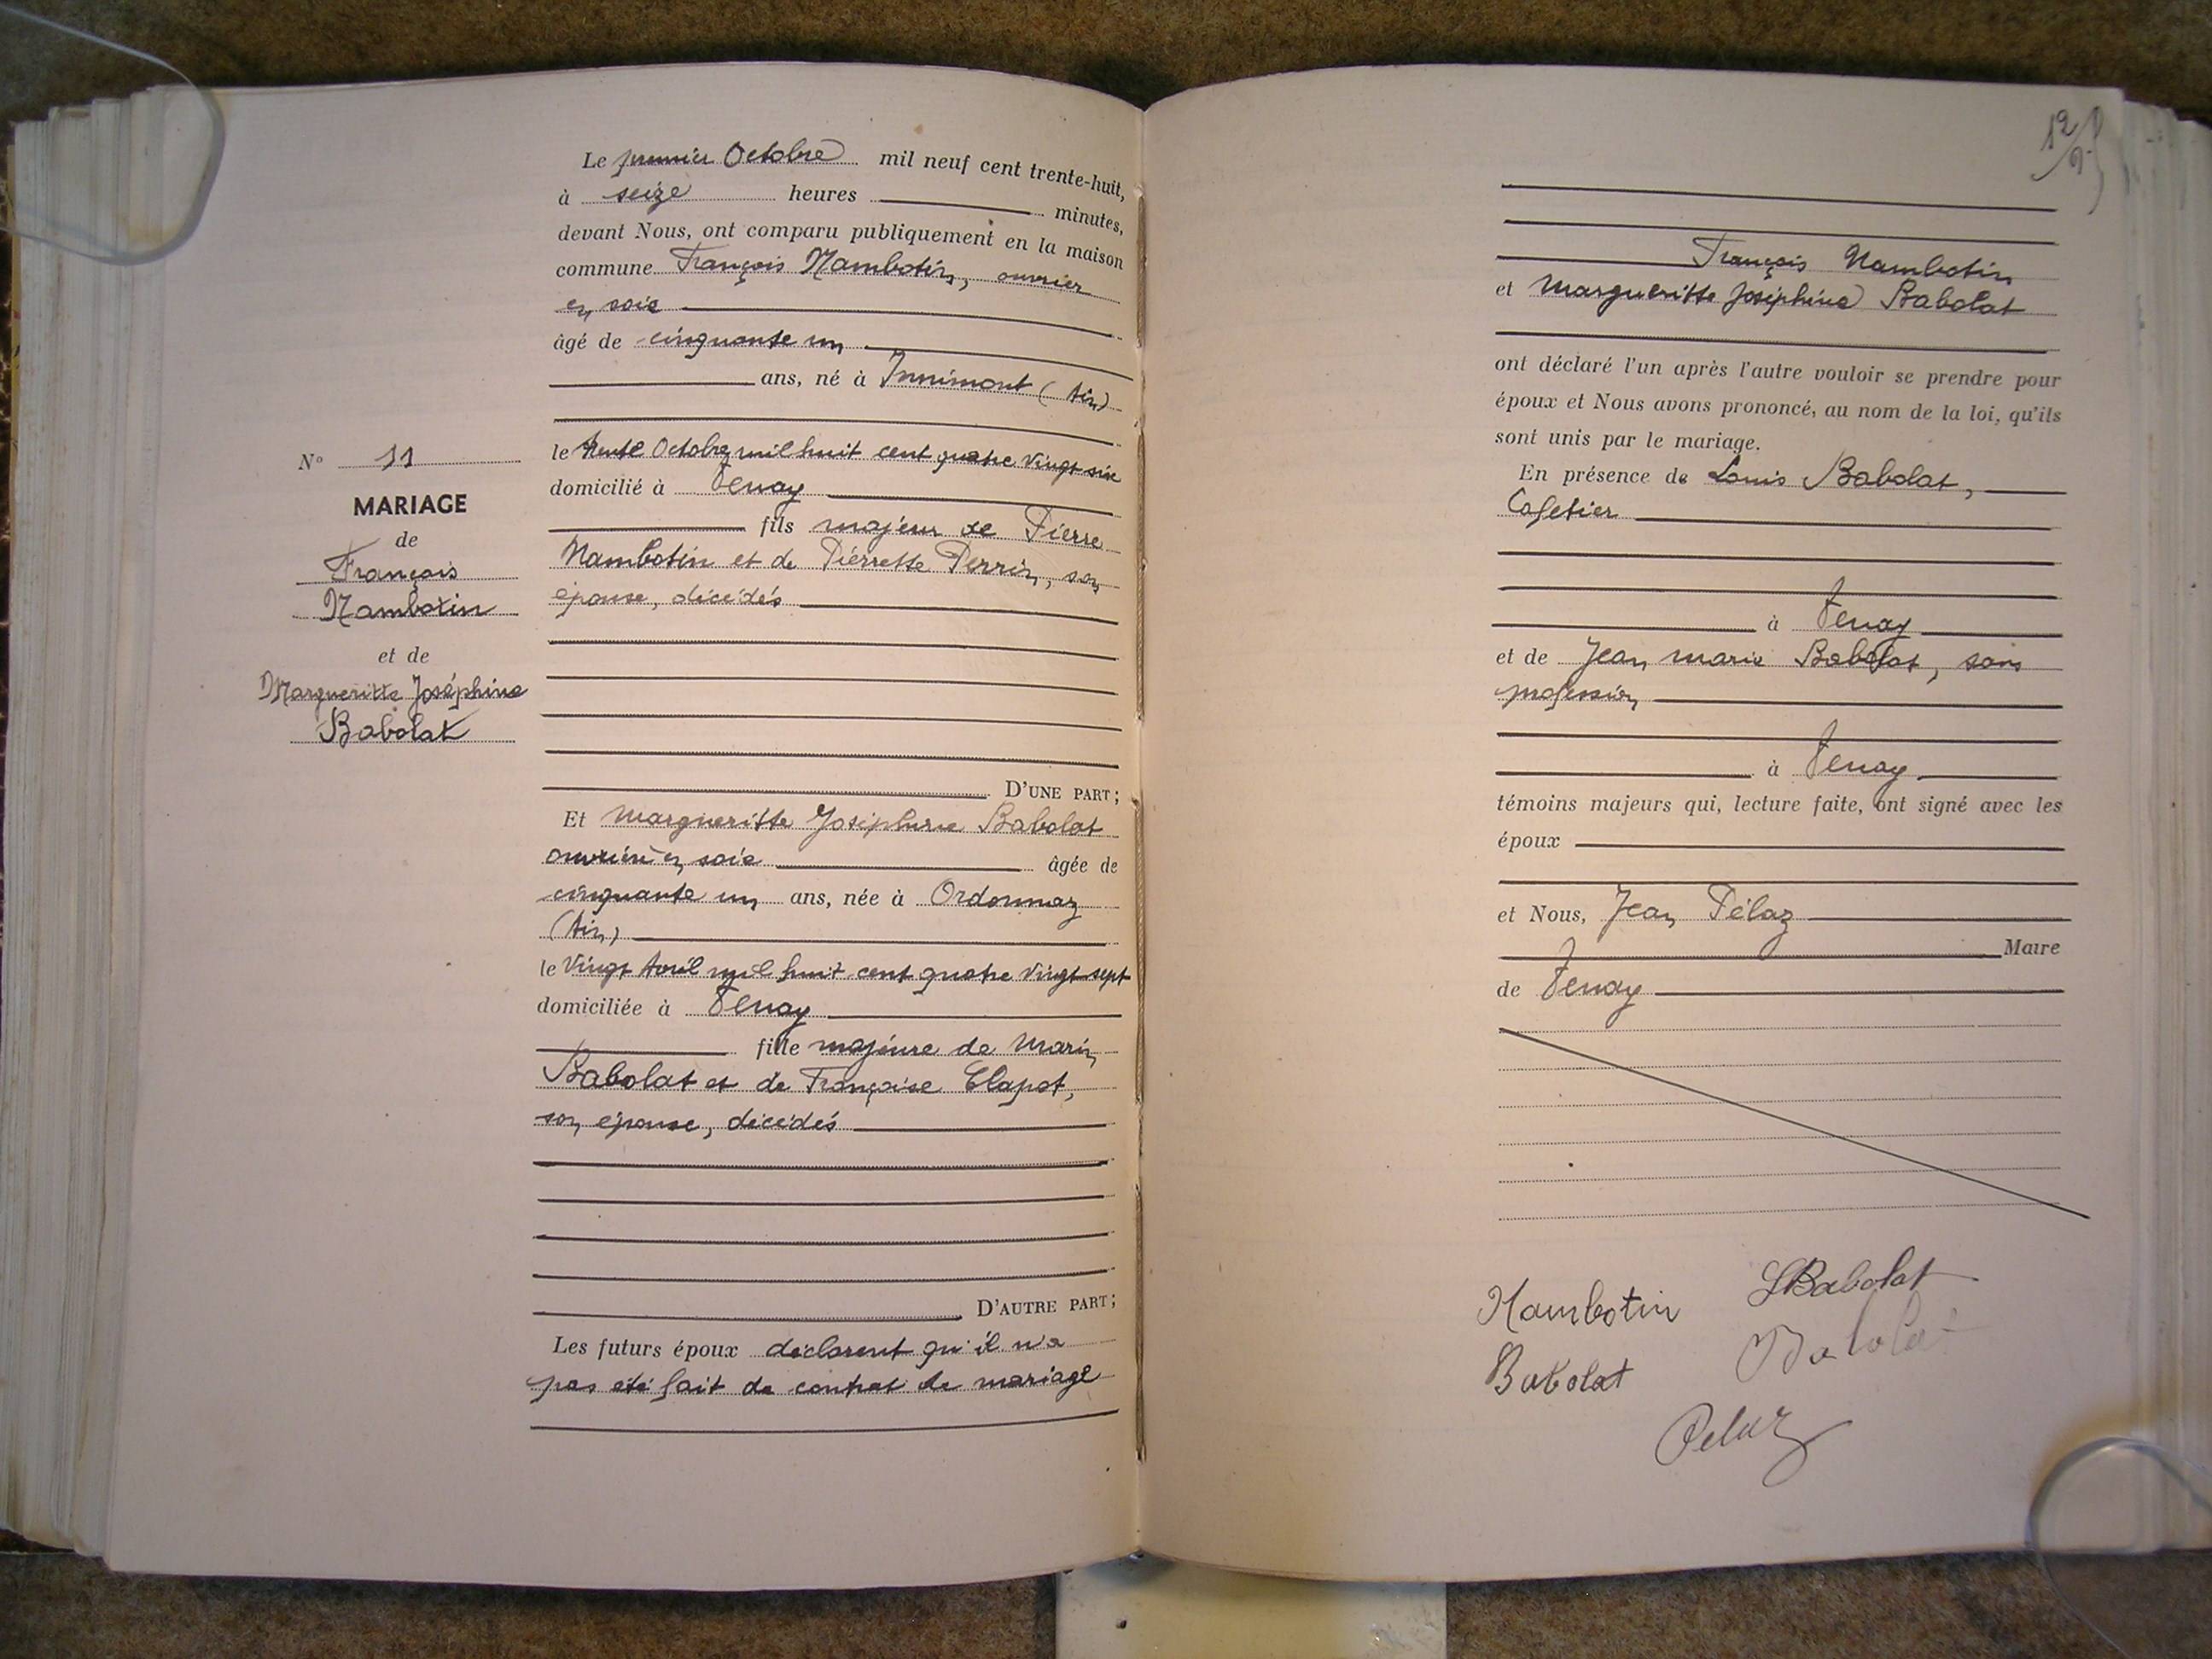 Le premier Octobre mil neuf cent trente-huit,
à seize heures minutes,
devant Nous, ont comparu publiquement en la maison
commune François Nambotin, ouvrier
en soie
âgé de cinquante un
ans, né à Innimont (Ain)
le trente Octobre mil huit cent quatre vingt six
domicilié à Tenay
fils majeur de Pierre
Nambotin et de Pierrette Perrin, son
épouse, décédés
D'UNE PART;
Et Margueritte Joséphine Babolat
ouvrière en soie âgée de
cinquante un ans, née à Ordonnaz
(Ain)
le Vingt Avril mil huit cent quatre vingt sept
domiciliée à Tenay
fille majeure de Marin
Babolat et de Françoise Clapot,
son épouse, décédés
D'AUTRE PART;
Les futurs époux déclarent qu'il n'a
pas été fait de contrat de mariage
N° 11
MARIAGE
de
François
Nambotin
et de
Margueritte Joséphine
Babolat
François Nambotin
et Margueritte Joséphine Babolat
ont déclaré l'un après l'autre vouloir se prendre pour
époux et Nous avons prononcé, au nom de la loi, qu'ils
sont unis par le mariage.
En présence de Louis Babolat,
Cafetier
à Tenay
et de Jean Marie Babolat, sans
profession
à Tenay
témoins majeurs qui, lecture faite, ont signé avec les
époux
et Nous, Jean Pélaz
Maire
de Tenay
Nambotin LBabolat
Babolat Babolat
Pelaz